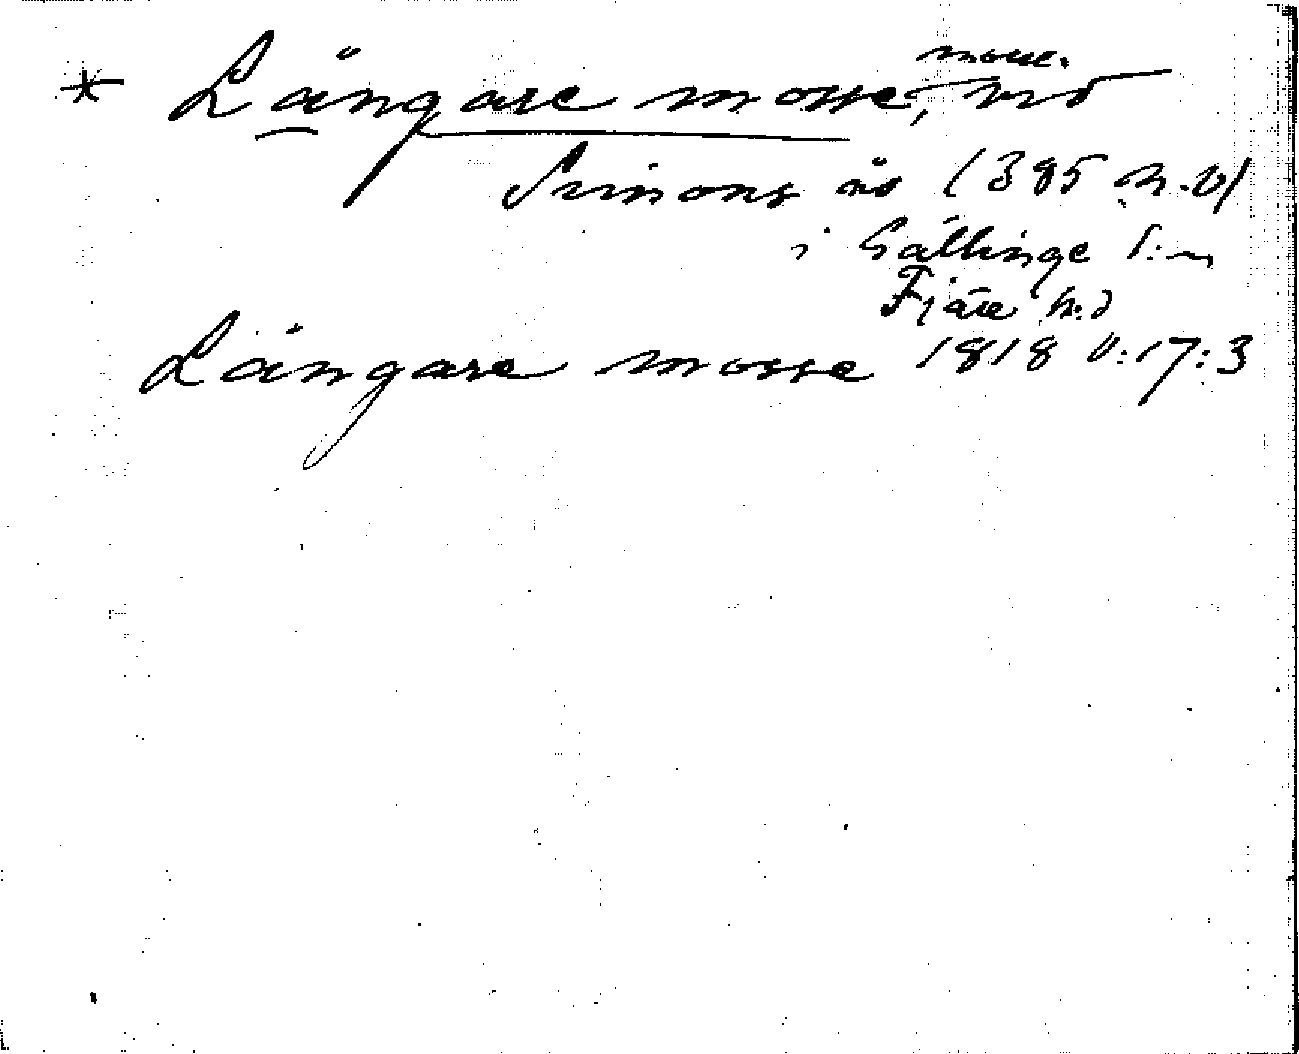 * Långare mosse, mosse. vid
Simons ås (385 m.ö)
i Gällinge s:n
Fjäre h:d
Långare mosse 1818 V:17:3